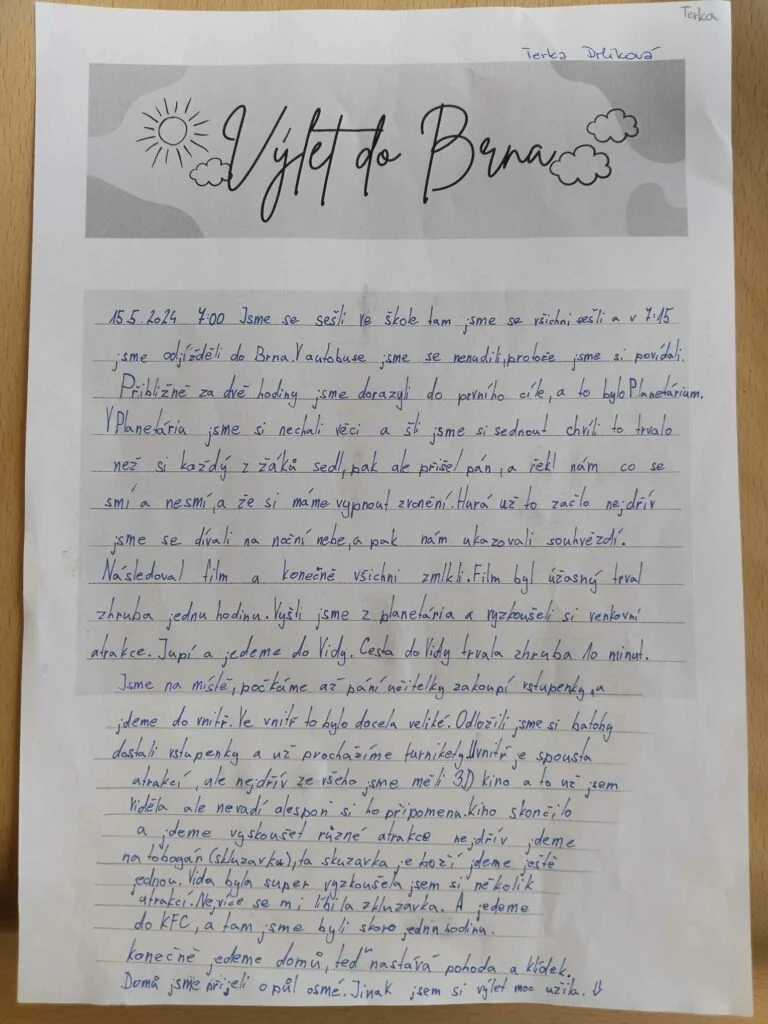 Terka
Terka Drlíková
Výlet do Brna
15.5.2024 7:00 Jsme se sešli ve škole tam jsme se všichni sešli a v 7:15
jsme odjížděli do Brna. V autobuse jsme se nenudili, protože jsme si povídali.
Přibližně za dvě hodiny jsme dorazyli do prvního cíle, a to bylo Planetárium.
V Planetária jsme si nechali věci a šli jsme si sednout chvíli to trvalo
než si každý z žáků sedl, pak ale přišel pán, a řekl nám co se
smí a nesmí, a že si máme vypnout zvonění. Hurá už to začlo nejdřív
jsme se dívali na noční nebe, a pak nám ukazovali souhvězdí.
Následoval film a konečně všichni zmlkli. Film byl úžasný trval
zhruba jednu hodinu. Vyšli jsme z planetária a vyzkoušeli si venkovní
atrakce. Jupí a jedeme do Vidy. Cesta do Vidy trvala zhruba 10 minut.
Jsme na místě, počkáme až paní učitelky zakoupí vstupenky, a
jdeme do vnitř. Ve vnitř to bylo docela veliké. Odložili jsme si batohy
dostali vstupenky a už procházíme turnikety. Uvnitř je spousta
atrakcí, ale nejdřív ze všeho jsme měli 3D kino a to už jsem
viděla ale nevadí alespoň si ho připomenu. Kino skončilo
a jdeme vyskoušet různé atrakce nejdřív jdeme
na tobogán (skluzavku), ta skuzavka je boží jdeme ještě
jednou. Vida byla super vyzkoušela jsem si několik
atrakcí. Nejvíce se mi líbila zkluzavka. A jedeme
do KFC, a tam jsme byli skoro jednu hodinu.
Konečně jedeme domů, teď nastává pohoda a klídek.
Domů jsme přijeli o půl osmé. Jinak jsem si výlet moc užila.